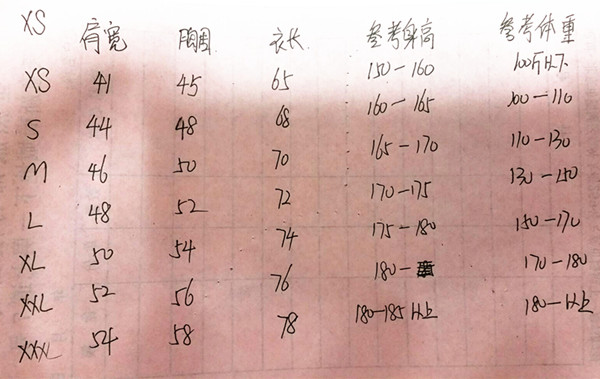 XS 肩宽 胸围 衣长 参考身高 参考体重
XS 41 45 65 150-160 100斤以下
S 44 48 68 160-165 100-110
M 46 50 70 165-170 110-130
L 48 52 72 170-175 130-150
XL 50 54 74 175-180 150-170
XXL 52 56 76 180- 170-180
XXXL 54 58 78 180-185以上 180-以上